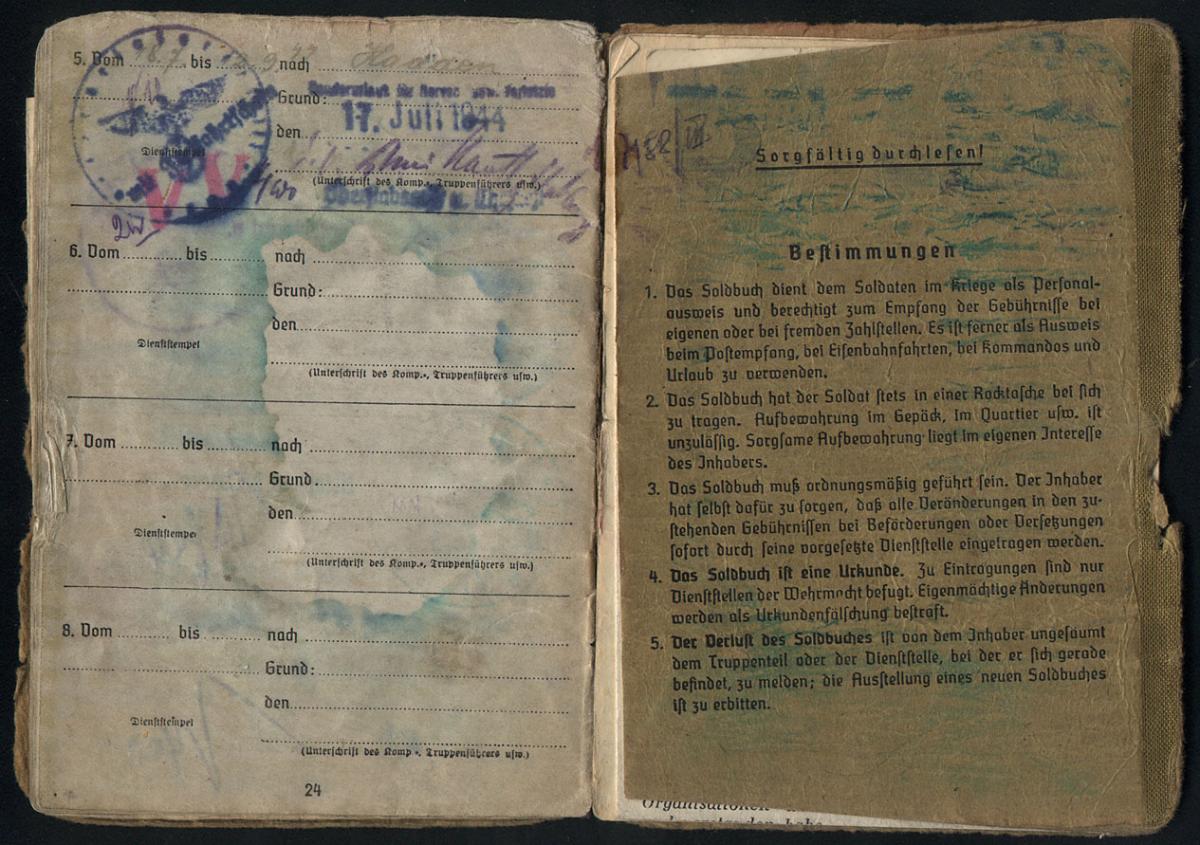 5. Vom 18.7. bis nach
Grund:
17. Juli 1944
den
Dienststempel
(Unterschrift des Komp.-, Truppenführers usw.)
6. Vom bis nach
Grund:
den
Dienststempel
(Unterschrift des Komp.-, Truppenführers usw.)
7. Vom bis nach
Grund.
den
Dienststempel
(Unterschrift des Komp.-, Truppenführers usw.)
8. Vom bis nach
Grund:
den
Dienststempel
(Unterschrift des Komp.-, Truppenführers usw.)
24
Sorgfältig durchlesen!
Bestimmungen
1. Das Soldbuch dient dem Soldaten im Kriege als Personal-
ausweis und berechtigt zum Empfang der Gebührnisse bei
eigenen oder bei fremden Zahlstellen. Es ist ferner als Ausweis
beim Postempfang, bei Eisenbahnfahrten, bei Kommandos und
Urlaub zu verwenden.
2. Das Soldbuch hat der Soldat stets in einer Rocktasche bei sich
zu tragen. Aufbewahrung im Gepäck, im Quartier usw. ist
unzulässig. Sorgsame Aufbewahrung liegt im eigenen Interesse
des Inhabers.
3. Das Soldbuch muß ordnungsmäßig geführt sein. Der Inhaber
hat selbst dafür zu sorgen, daß alle Veränderungen in den zu-
stehenden Gebührnissen bei Beförderungen oder Versetzungen
sofort durch seine vorgesetzte Dienststelle eingetragen werden.
4. Das Soldbuch ist eine Urkunde. Zu Eintragungen sind nur
Dienststellen der Wehrmacht befugt. Eigenmächtige Änderungen
werden als Urkundenfälschung bestraft.
5. Der Verlust des Soldbuches ist von dem Inhaber ungesäumt
dem Truppenteil oder der Dienststelle, bei der er sich gerade
befindet, zu melden; die Ausstellung eines neuen Soldbuches
ist zu erbitten.
Organisationen